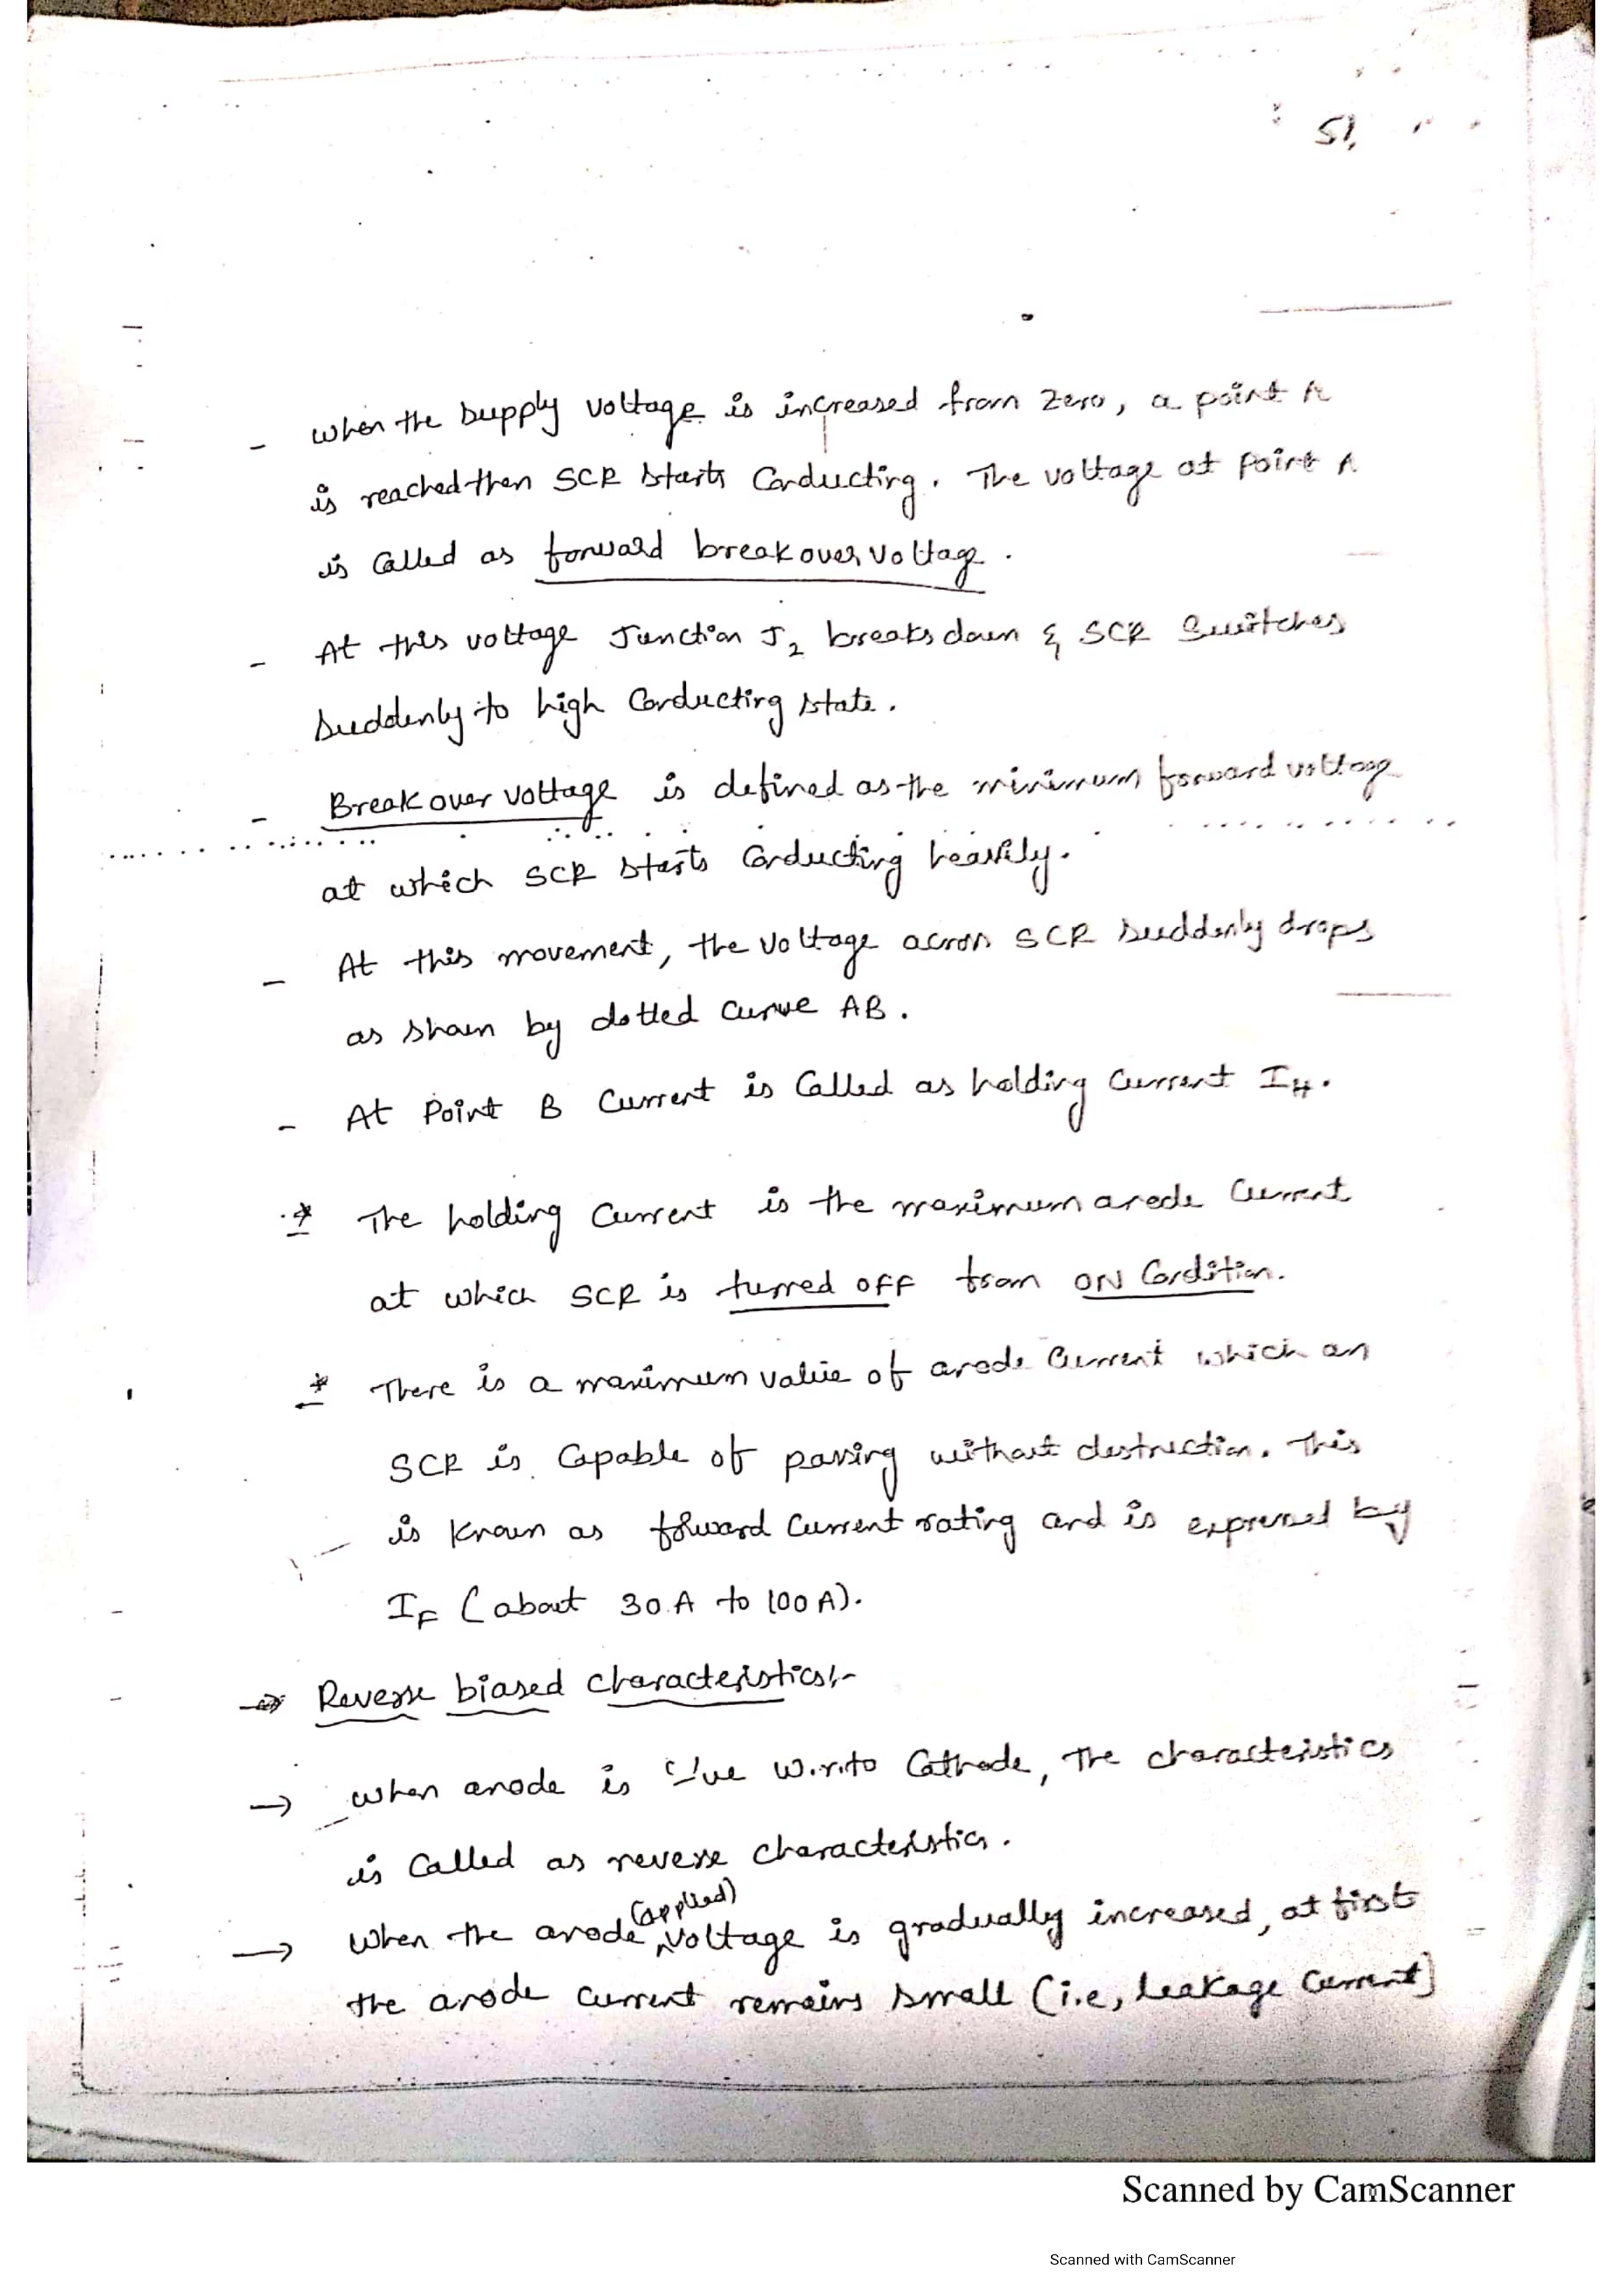 51,
- when the supply voltage is increased from zero, a point A
is reached then SCR starts Conducting. The voltage at point A
is Called as forward breakover voltage.
- At this voltage Junction J₂ breaks down & SCR Switches
suddenly to high Conducting state.
- Breakover voltage is defined as the minimum forward voltage
at which SCR starts Conducting heavily.
- At this movement, the voltage across SCR suddenly drops
as shown by dotted curve AB.
- At Point B Current is Called as holding Current I_H.
* The holding Current is the maximum anode Current
at which SCR is turned OFF from ON Condition.
* There is a maximum value of anode Current which an
SCR is Capable of passing without destruction. This
is known as forward Current rating and is expressed by
I_F (about 30A to 100A).
→ Reverse biased characteristics:-
→ when anode is -ve w.r.to Cathode, The characteristics
is Called as reverse characteristics.
(applied)
→ When the anode ^ voltage is gradually increased, at first
the anode current remains small (i.e, leakage Current)
Scanned by CamScanner
Scanned with CamScanner